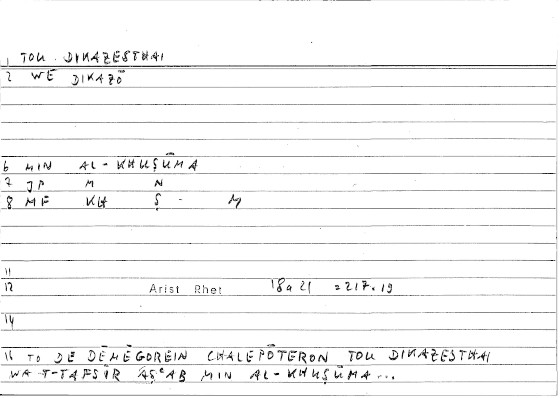 1 TOU DIKAZESTHAI
2 WE DIKAZŌ
6 MIN AL-KHUṢŪMA
7 JP M N
8 MF KH Ṣ - M
11
12 Arist Rhet 18a21 = 217.19
14
16 TO DE DĒMĒGOREIN CHALEPŌTERON TOU DIKAZESTHAI
WA T-TAFSĪR AṢʿAB MIN AL-KHUṢŪMA...